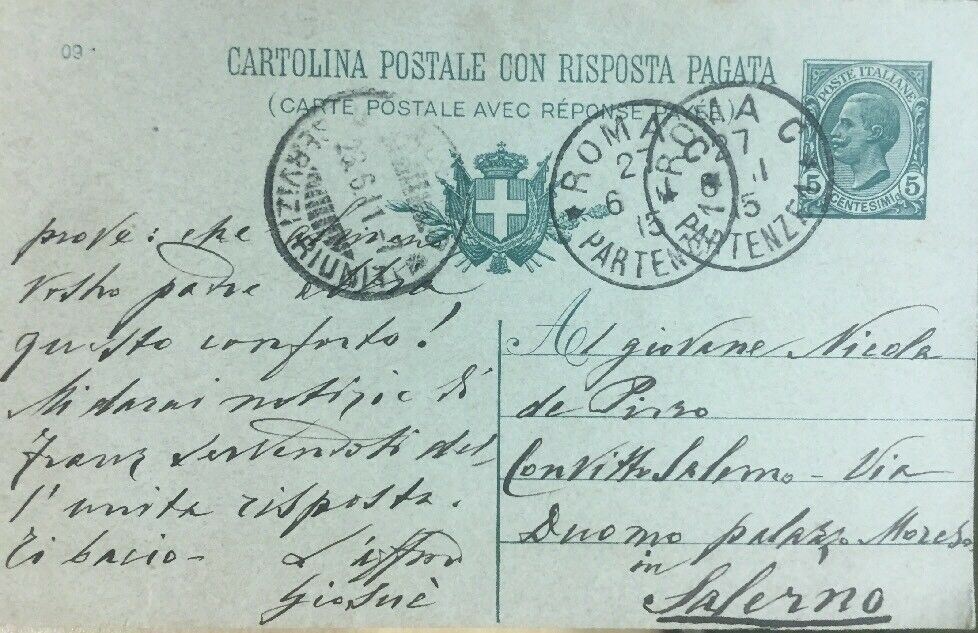 09
CARTOLINA POSTALE CON RISPOSTA PAGATA
(CARTE POSTALE AVEC RÉPONSE PAYÉE)
POSTE ITALIANE
5 5
CENTESIMI
ROMA
27
6
15
PARTENZE
27
15
PARTENZE
SERVIZI RIUNITI
prove: che almeno
Vostro padre abbia
questo conforto!
Mi darai notizie di
Franz servendoti del-
l'unita risposta.
Ti bacio - L'affmo
Giosuè
Al giovane Nicola
de Pirro
Convitto Salerno - Via
Duomo palazzo
in
Salerno